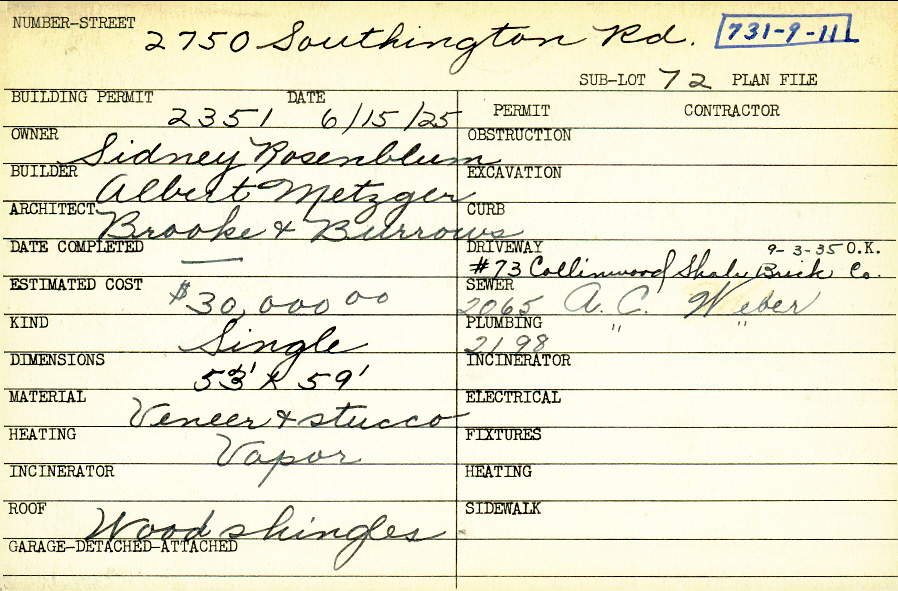 NUMBER-STREET 2750 Southington Rd. 731-9-11
SUB-LOT 72 PLAN FILE
BUILDING PERMIT 2351 DATE 6/15/25
OWNER Sidney Rosenblum
BUILDER Albert Metzger
ARCHITECT Brooke & Burrows
DATE COMPLETED —
ESTIMATED COST $30,000 00
KIND Single
DIMENSIONS 53' x 59'
MATERIAL Veneer & stucco
HEATING Vapor
INCINERATOR
ROOF Wood shingles
GARAGE-DETACHED-ATTACHED
PERMIT CONTRACTOR
OBSTRUCTION
EXCAVATION
CURB
DRIVEWAY 9-3-35 O.K.
#73 Collinwood Shale Brick Co.
SEWER
2065 A. C. Weber
PLUMBING " "
2198
INCINERATOR
ELECTRICAL
FIXTURES
HEATING
SIDEWALK